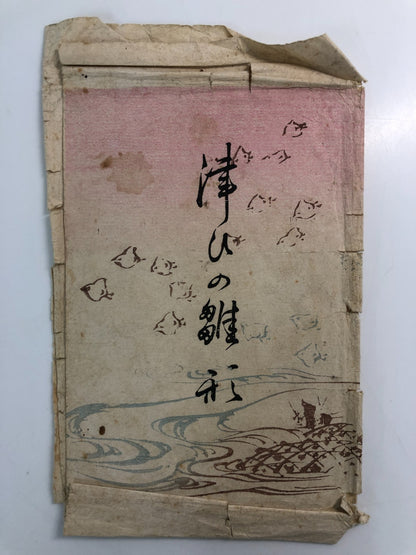 津ひの雛形